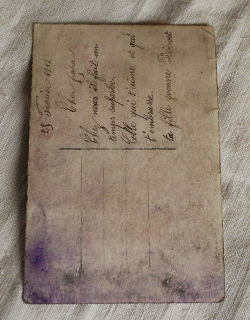 25 Février 19
Cher papa
Chez nous il fait un
temps superbe.
Celle qui t'aime et qui
t'embrasse.
ta fille